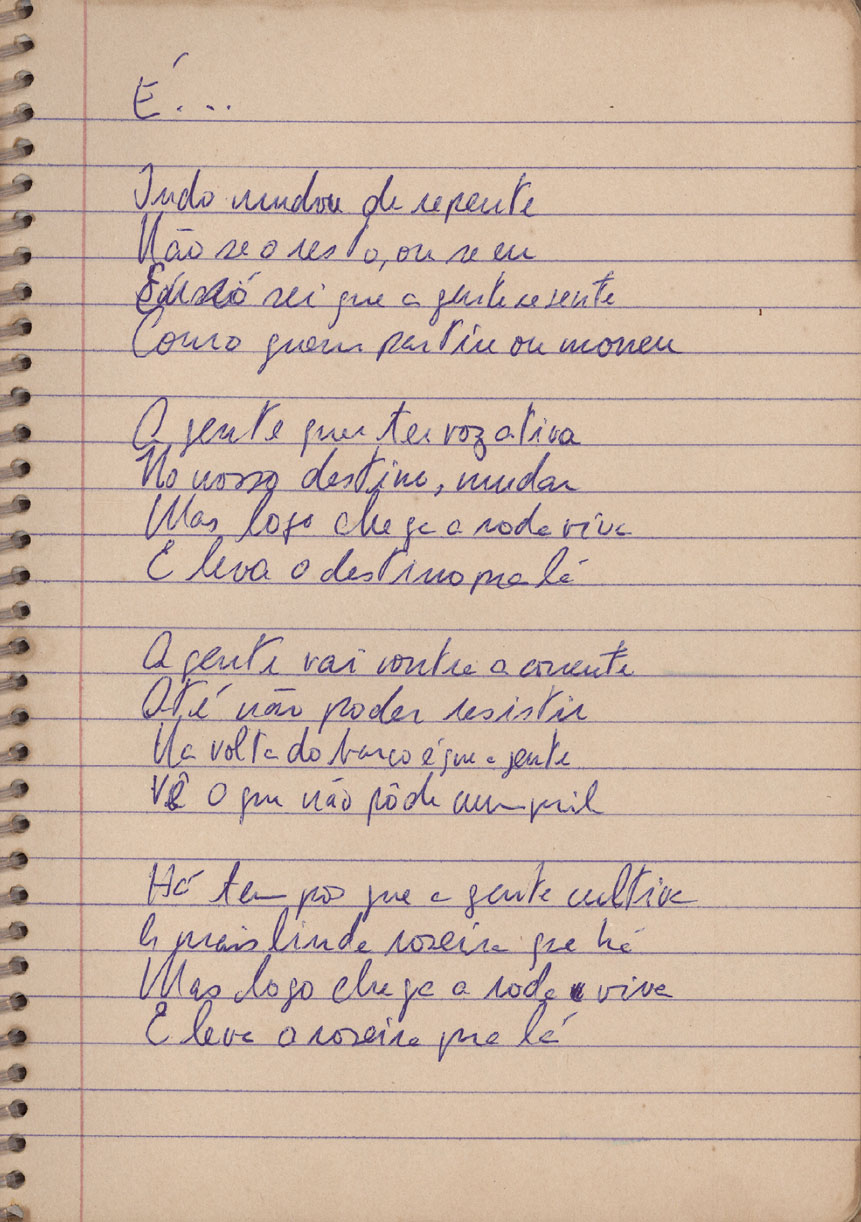 É...
Tudo mudou de repente
Não se o resto, ou se eu
Eu só sei que a gente se sente
Como quem partiu ou morreu
A gente quer ter voz ativa
No nosso destino, mudar
Mas logo chega a roda viva
E leva o destino pra lá
A gente vai contra a corrente
Até não poder resistir
Na volta do barco é que a gente
Vê o que não pôde cumprir
Há tempos que a gente cultiva
A mais linda roseira que há
Mas logo chega a roda viva
E leva a roseira pra lá